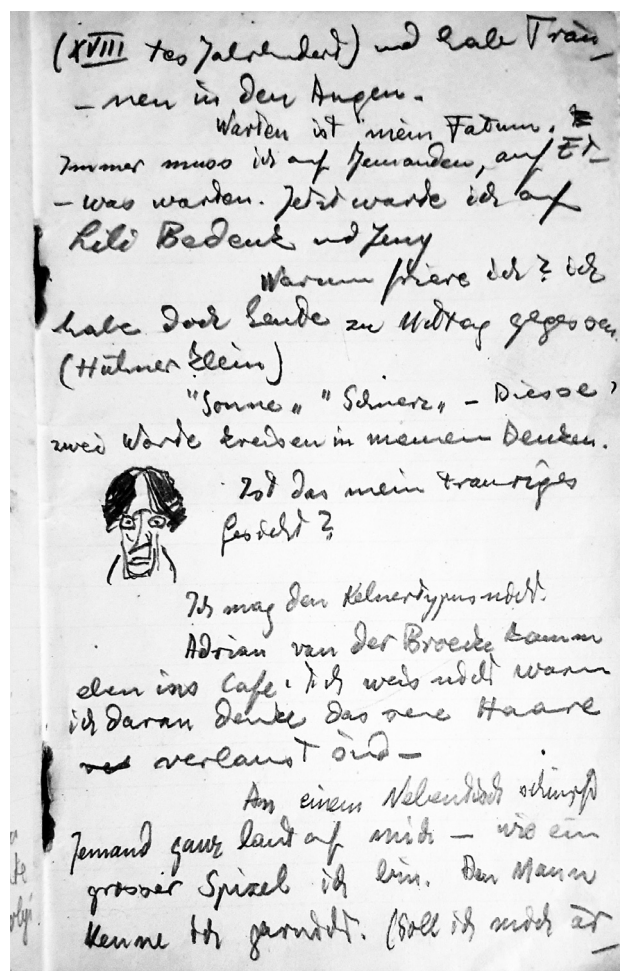 (XVIII tes Jahrhundert) und habe Trän-
-nen in den Augen.
Warten ist mein Fatum.
Immer muss ich auf Jemanden, auf Et-
-was warten. Jetzt warte ich auf
Lili Bedenk und Jeny
Warum friere ich? ich
habe doch heute zu Mittag gegessen.
(Hühnerklein)
"Sonne" "Schmerz" - Diese
zwei Worte kreisen in meinem Denken.
Ist das mein trauriges
Gesicht?
Ich mag den Kelnertypus nicht.
Adrian van der Broecke kamm
eben ins Cafe. Ich weis nicht warm
ich daran denke das sene Haare
verlaust sind -
An einem Nebentisch schimpft
Jemand ganz laut auf mich - wie ein
grosser Spizel ich bin. Den Mann
kenne ich garnicht. (Soll ich mich är-